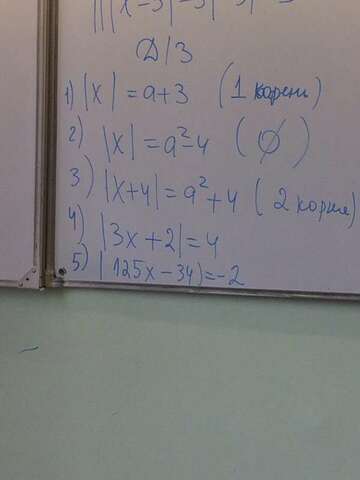 |||x-3|-3|-3|=3
Д/З
1) |x| = a+3 (1 корень)
2) |x| = a²-4 (∅)
3) |x+4| = a²+4 (2 корня)
4) |3x+2| = 4
5) |125x-34| = -2